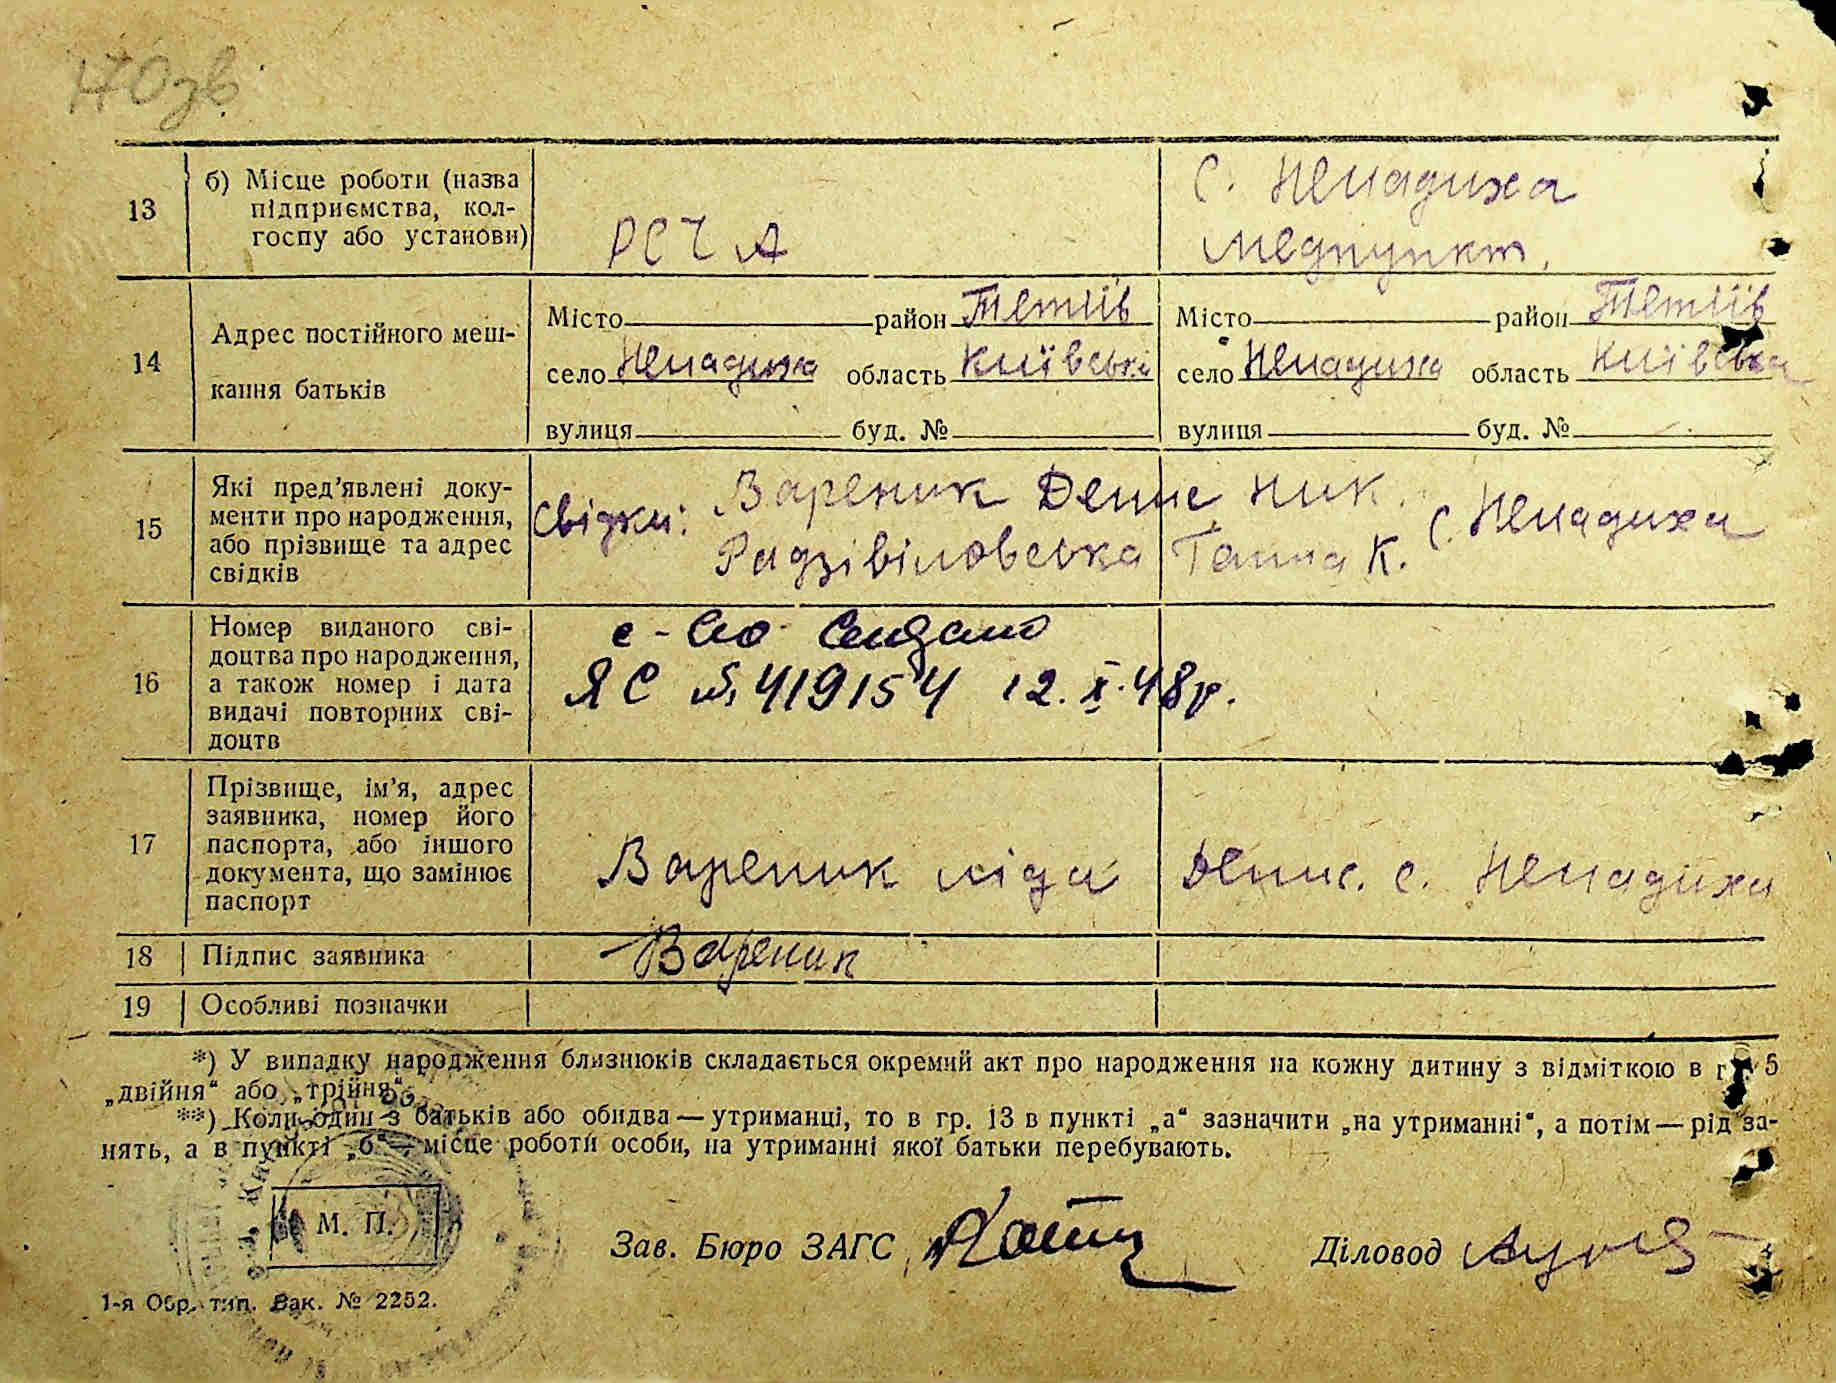 170зв
13
б) Місце роботи (назва
підприємства, кол-
госпу або установи)
РСЧА
с. Ненадиха
медпункт.
14
Адрес постійного меш-
кання батьків
Місто район Тетіїв
село Ненадиха область Київська
вулиця буд. №
Місто район Тетіїв
село Ненадиха область Київська
вулиця буд. №
15
Які пред'явлені доку-
менти про народження,
або прізвище та адрес
свідків
Свідки: Вареник Денис Ник.
Радзівіловська Ганна К. с. Ненадиха
16
Номер виданого сві-
доцтва про народження,
а також номер і дата
видачі повторних сві-
доцтв
с-во
ЯС № 419154 12.X.48р.
17
Прізвище, ім'я, адрес
заявника, номер його
паспорта, або іншого
документа, що замінює
паспорт
Вареник Ліда Денис. с. Ненадиха
18
Підпис заявника
Вареник
19
Особливі позначки
*) У випадку народження близнюків складається окремий акт про народження на кожну дитину з відміткою в 5
„двійня“ або „трійня“.
**) Коли один з батьків або обидва — утриманці, то в гр. 13 в пункті „а“ зазначити „на утриманні“, а потім — рід за-
нять, а в пункті „б“ — місце роботи особи, на утриманні якої батьки перебувають.
М. П.
Зав. Бюро ЗАГС
Діловод
1-я Обр. тип. Зак. № 2252.